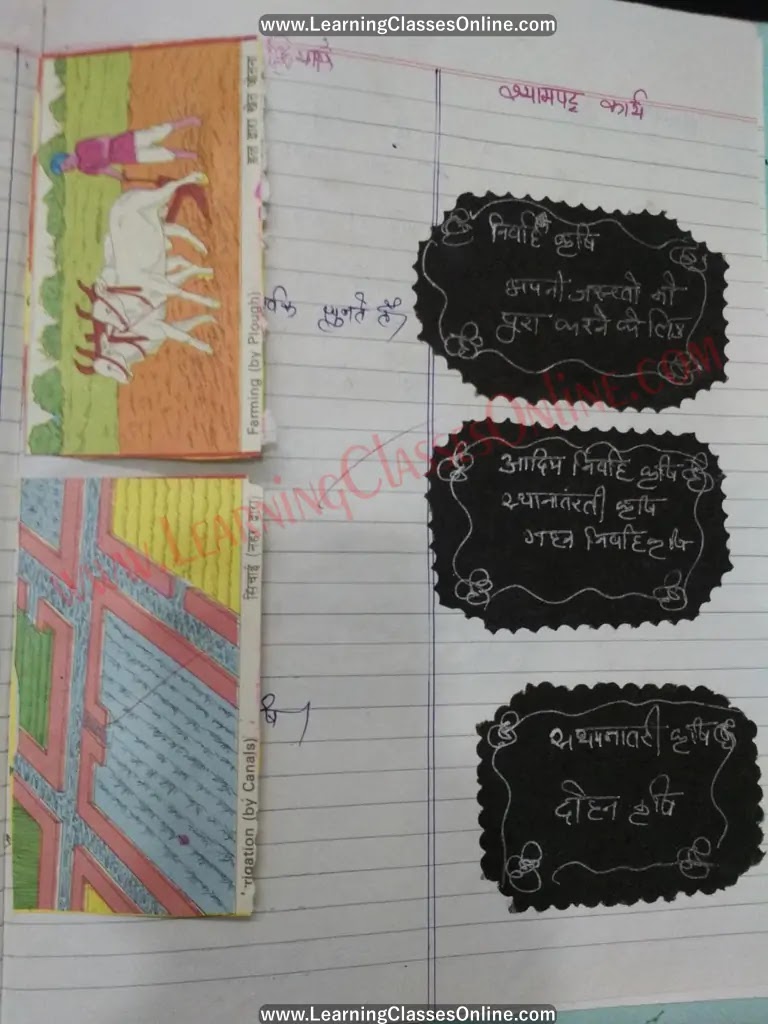 www.LearningClassesOnline.com
श्यामपट्ट कार्य
हल द्वारा खेत जोतना
Farming (by Plough)
चुनते है।
निर्वाह कृषि
अपनी जरूरतो को
पूरा करने के लिए
www.LearningClassesOnline.com
आदिम निर्वाह कृषि
स्थानातंरती कृषि
गहन निर्वाह कृषि
सिंचाई (नहर द्वारा)
rrigation (by Canals)
षि।
स्थानातरी कृषि
दोहन कृषि
www.LearningClassesOnline.com